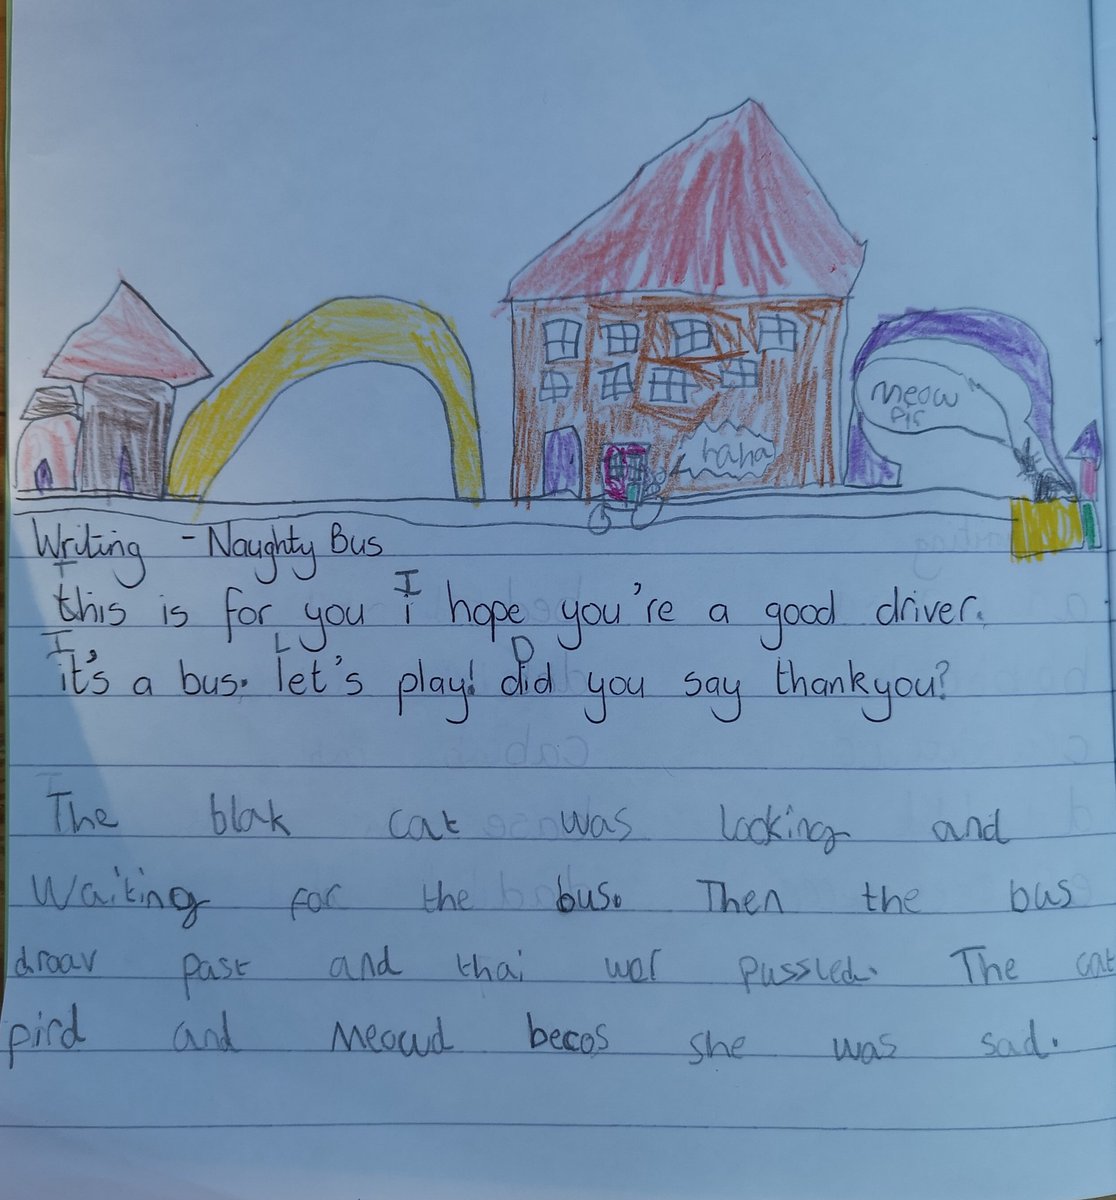 meow
pir
haha
Writing - Naughty Bus
this is for you i I hope you're a good driver.
it's a bus. let's play! did you say thankyou?
The blak cat was looking and
Waiting for the bus. Then the bus
draav past and thai wer pussled. The cat
pird and meowd becos she was sad.